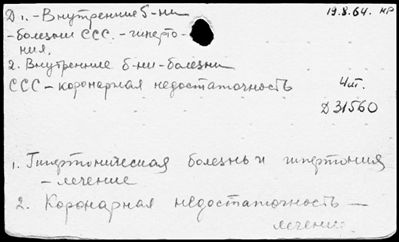 Д 1. - Внутренние б-ни
- болезни ССС. - гиперто-
ния.
2. Внутренние б-ни - болезни
ССС - коронарная недостаточность
19.8.64. нр
Чит.
Д 31560
1. Гипертоническая болезнь и гипертония
- лечение
2. Коронарная недостаточность -
лечение